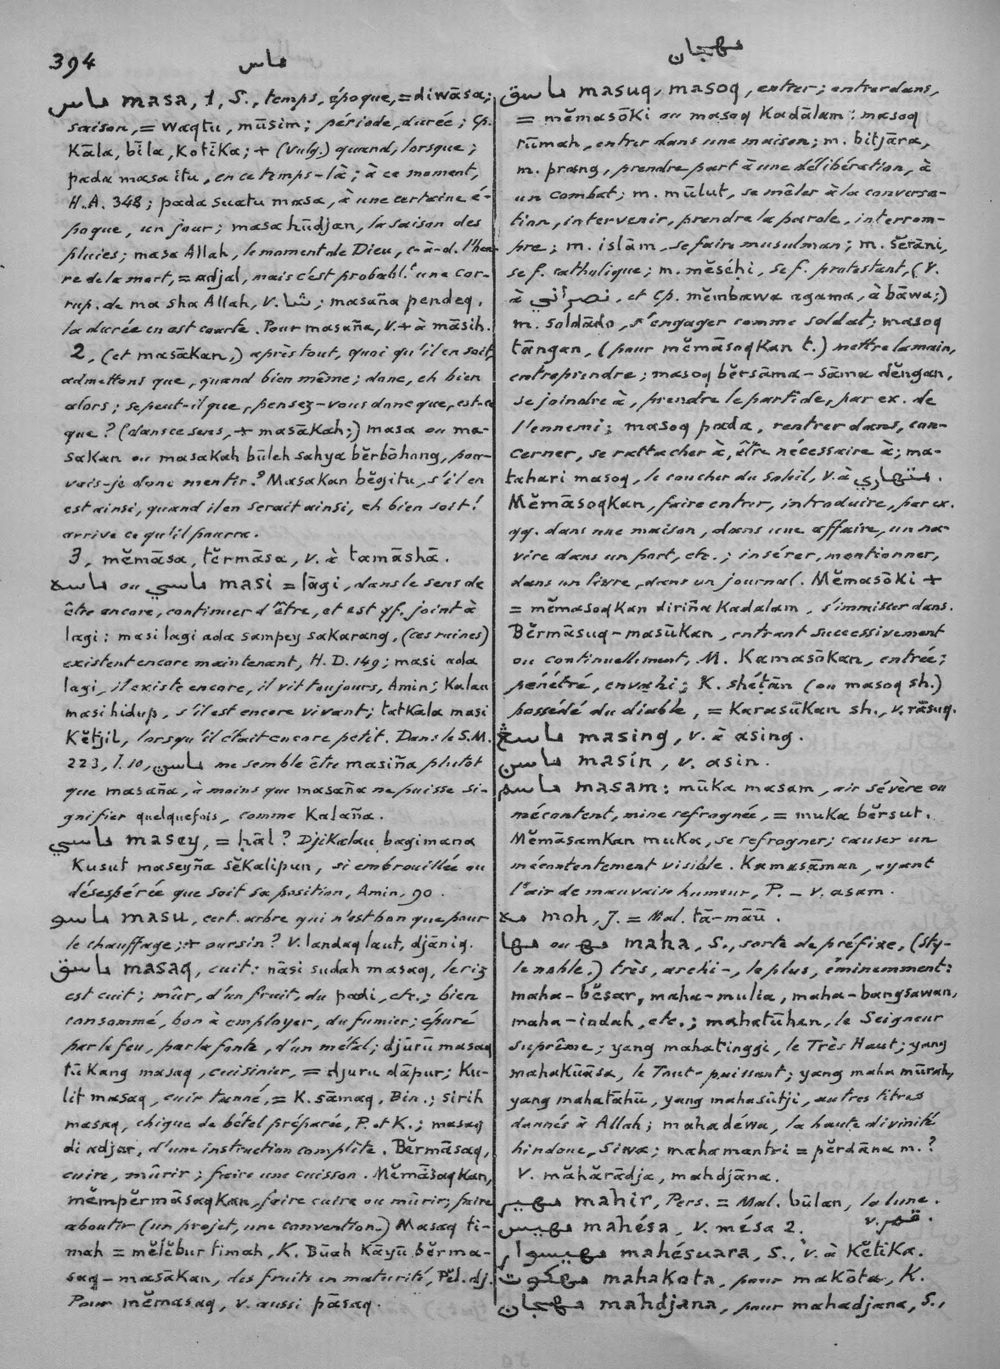 394
ماس
مهجان
ماس masa, 1, S., temps, époque, = diwāsa;
saison, = waqtu, mūsim; période, durée; cp.
Kāla, bīla, Kotika; + (vulg.) quand, lorsque;
pada masa itu, en ce temps-là; à ce moment,
H.A. 348; pada suatu masa, à une certaine é-
poque, un jour; masa hūdjan, la saison des
pluies; masa Allah, le moment de Dieu, c-à-d. l'heu
re de la mort, = adjal, mais c'est probabl.t une cor-
rup. de ma sha Allah, v. شا; masaña pendeq,
la durée en est courte. Pour masaña, v. + à māsih.
2, (et masākan,) après tout, quoi qu'il en soit,
admettons que, quand bien même; donc, eh bien
alors; se peut-il que, pensez-vous donc que, est-ce
que? (dans ce sens, + masākah;) masa ou ma-
sakan ou masakah būleh sahya bĕrbōhong, pour-
vais-je donc mentir? Masakan bĕgitu, s'il en
est ainsi, quand il en serait ainsi, eh bien soit!
arrive ce qu'il pourra.
3, mĕmāsa, tĕrmāsa, v. à tamāshā.
ماسه ou ماسي masi = lāgi, dans le sens de
être encore, continuer d'être, et est qf. joint à
lagi: masi lagi ada sampey sakarang, (ces ruines)
existent encore maintenant, H.D. 149; masi ada
lagi, il existe encore, il vit toujours, Amin; Kalau
masi hidup, s'il est encore vivant; tatkāla masi
Kĕtjil, lorsqu'il était encore petit. Dans le S.M.
223, l. 10, ماسين me semble être masiña plutôt
que masaña, à moins que masaña ne puisse si-
gnifier quelquefois, comme Kalaña.
ماسي masey, = ḥāl? Djikalau bagimana
Kusut maseyña sĕkalipun, si embrouillée ou
désespérée que soit sa position, Amin, 90.
ماسو masu, cert. arbre qui n'est bon que pour
le chauffage; + oursin? v. landaq laut, djāniq.
ماسق masaq, cuit: nāsi sudah masaq, le riz
est cuit; mûr, d'un fruit, du padi, etc.; bien
consommé, bon à employer, du fumier; épuré
par le feu, par la fonte, d'un métal; djūrū masaq
tūkang masaq, cuisinier, = djuru dāpur; Ku-
lit masaq, cuir tanné, = K. sāmaq, Bin.; sirih
masaq, chique de bétel préparée, P. et K.; masaq
di adjar, d'une instruction complète. Bĕrmāsaq,
cuire, mûrir; faire une cuisson. Mĕmāsaqkan,
mĕmpĕrmāsaqkan, faire cuire ou mûrir; faire
aboutir (un projet, une convention.) Masaq ti-
mah = mĕlĕbur timah, K. Būah Kāyū bĕrma-
saq-masākan, des fruits en maturité, Pĕl. dj.
Pour mĕmasaq, v. aussi pāsaq.
ماسق masuq, masoq, entrer; entrer dans,
= mĕmasōki ou masoq Kadālam: masoq
rūmah, entrer dans une maison; m. bitjāra,
m. prang, prendre part à une délibération, à
un combat; m. mūlut, se mêler à la conversa-
tion, intervenir, prendre la parole, interrom-
pre; m. islām, se faire musulman; m. sĕrāni,
se f. catholique; m. mĕsēḥi, se f. protestant, (v.
à نصراني, et cp. mĕmbawa agama, à bāwa;)
m. soldādo, s'engager comme soldat; masoq
tāngan, (pour mĕmāsoqkan t.) mettre la main,
entreprendre; masoq bĕrsāma-sāma dĕngan,
se joindre à, prendre le parti de, par ex. de
l'ennemi; masoq pada, rentrer dans, con-
cerner, se rattacher à, être nécessaire à; ma-
tahari masoq, le coucher du soleil, v. à متهاري.
Mĕmāsoqkan, faire entrer, introduire, par ex.
qq. dans une maison, dans une affaire, un na-
vire dans un port, etc.; insérer, mentionner,
dans un livre, dans un journal. Mĕmasōki +
= mĕmasoqkan diriña kadalam, s'immiscer dans.
Bĕrmāsuq-masūkan, entrant successivement
ou continuellement, M. Kamasōkan, entrée;
pénétré, envahi; K. shétān (ou masoq sh.)
possédé du diable, = Karasūkan sh., v. rāsuq.
ماسڠ masing, v. à asing.
ماسن masīn, v. asin.
ماسم masam: mūka masam, air sévère ou
mécontent, mine refrognée, = muka bĕrsut.
Mĕmāsamkan muka, se refrogner; causer un
mécontentement visible. Kamasāman, ayant
l'air de mauvaise humeur, P. – v. asam.
مه moh, J. = Mal. tā-māū.
مها ou مه maha, S., sorte de préfixe, (sty-
le noble,) très, archi-, le plus, éminemment:
maha-bĕsar, maha-mulia, maha-bangsawan,
maha-indah, etc.; mahatūhan, le Seigneur
suprême; yang mahatinggi, le Très Haut; yang
mahakūāsa, le Tout-puissant; yang maha mūrah,
yang mahatāhū, yang mahasūtji, autres titres
donnés à Allah; mahadéwa, la haute divinité
hindoue, Siwa; mahamantri = pĕrdāna m.?
V. măhărādja, mahdjāna.
مهير mahir, Pers. = Mal. būlan, la lune.
v. قمر.
مهيس mahésa, v. mésa 2.
مهيسوار mahésuara, S., v. à Kĕtika.
مهكوت mahakota, pour makōta, K.
مهجان mahdjana, pour mahadjana, S.,